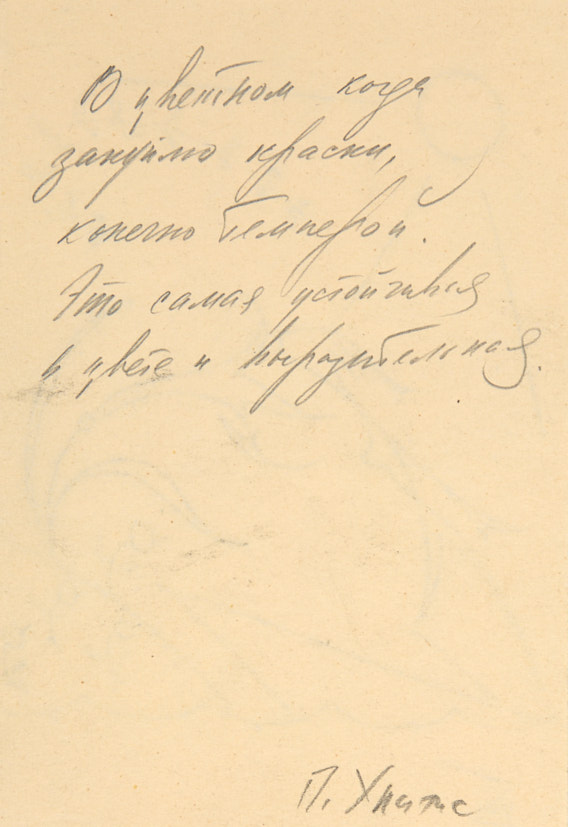 В цветном когда
закуплю краски,
конечно темперой.
Это самая устойчивая
в цвете и выразительная.
П. Хнитс